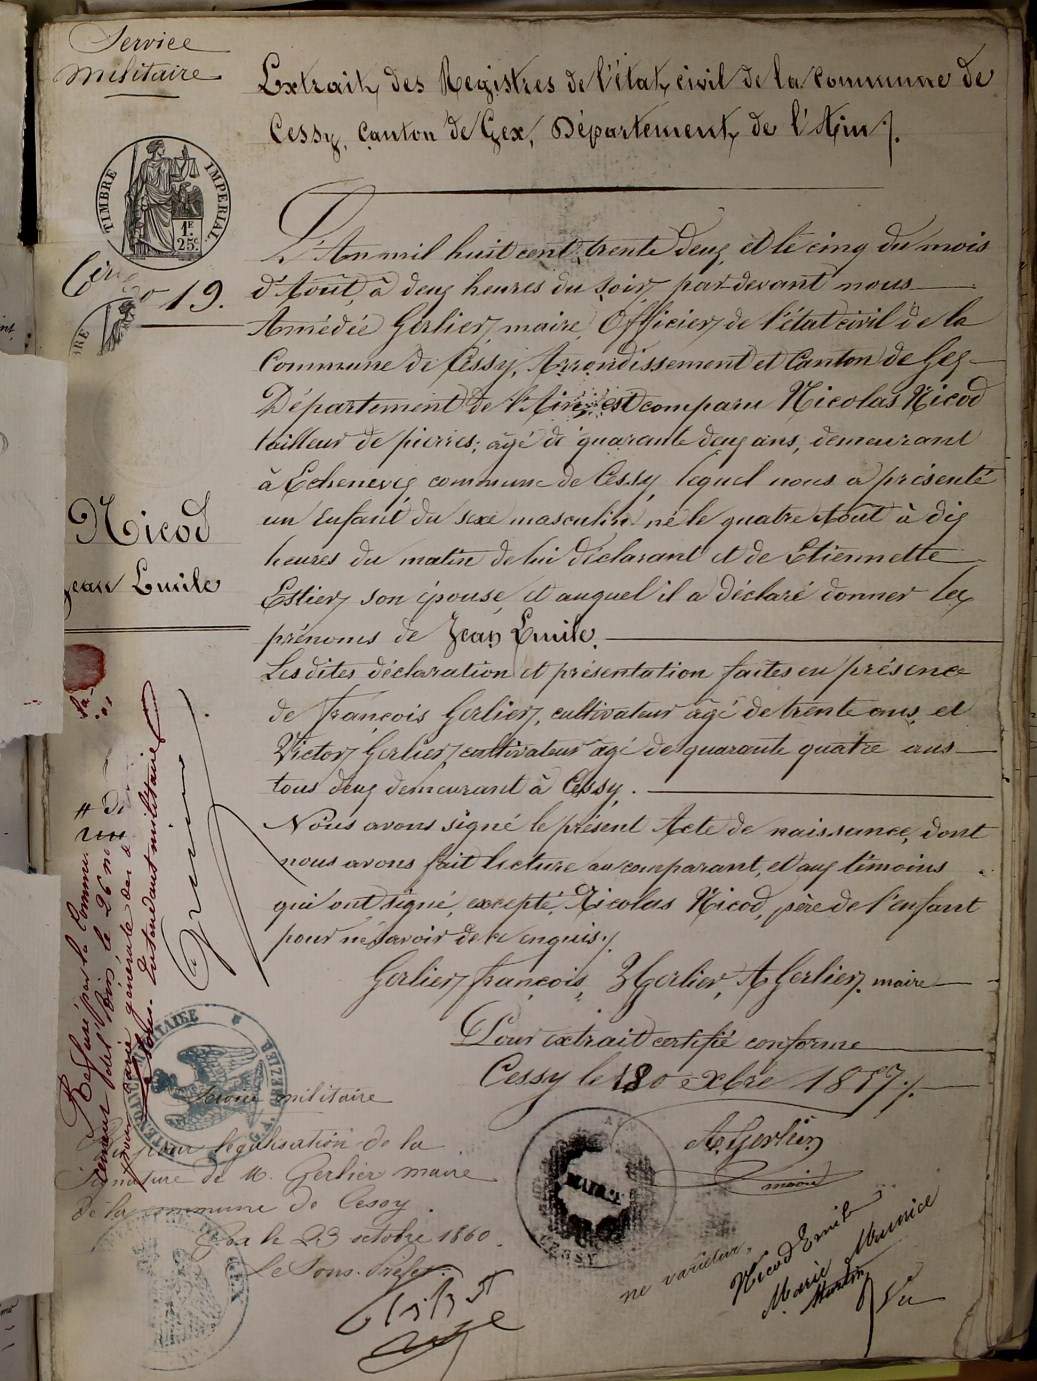 Service
militaire
Extrait des Registres de l'état civil de la commune de
Cessy, canton de Gex, Département de l'Ain.
TIMBRE IMPERIAL
1F.
25c
19.
L'An mil huit cent trente deux et le cinq du mois
d'Août, à deux heures du soir, par devant nous
Amédée Gerlier, maire, Officier de l'état civil de la
Commune de Cessy, Arrondissement et Canton de Gex
Département de l'Ain, est comparu Nicolas Nicod
tailleur de pierres, agé de quarante deux ans, demeurant
à Echenevex commune de Cessy, lequel nous a présenté
un Enfant du sexe masculin né le quatre Août à dix
heures du matin de lui déclarant et de Etiennette
Estier, son épouse, et auquel il a déclaré donner les
prénoms de Jean Emile.
Nicod
Jean Emile
Lesdites déclaration et présentation faites en présence
de François Gerlier, cultivateur agé de trente ans, et
Victor Gerlier, cultivateur agé de quarante quatre ans
tous deux demeurant à Cessy.
Nous avons signé le présent Acte de naissance, dont
nous avons fait lecture au comparant, et aux témoins
qui ont signé, excepté, Nicolas Nicod, père de l'enfant
pour ne savoir de ce enquis.
Gerlier françois, VGerlier, A Gerlier, maire
Pour extrait certifié conforme
Cessy le 30 Xbre 1857.
A. Gerlier
maire
MAIRIE
CESSY
militaire
pour légalisation de la
signature de M. Gerlier maire
de la commune de Cessy.
Gex le 23 octobre 1860.
Le Sous-Préfet
GEX
ne varietur,
Nicod Emile
Marie Maurice
Vu